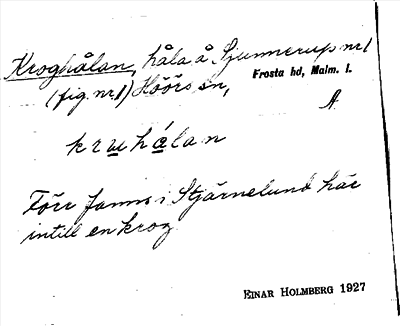 Kroghålan, håla å Sjunnerup nr 1
Frosta hd, Malm. l.
(fig. nr 1) Höörs sn,
A.
kruhálan
Förr fanns i Stjärnelund här
intill en krog
EINAR HOLMBERG 1927